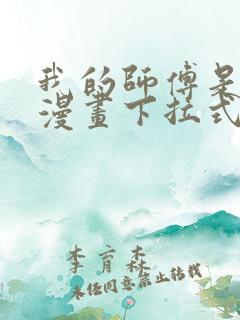 我的師傅是
漫畫下拉式
李育森
未經同意禁止转載